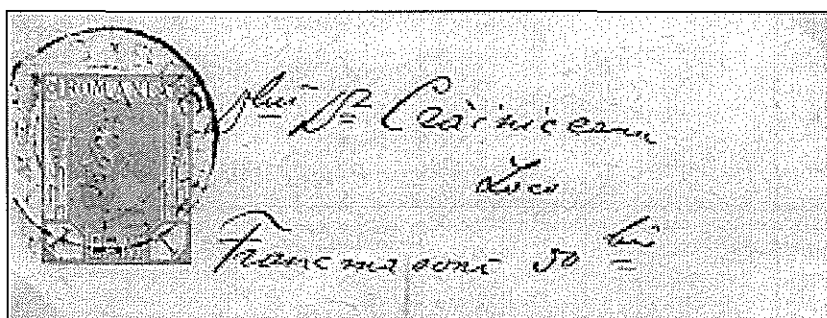 ROMANIA
Dlui Dr Crăiniceanu
Loco
Francmasoni 50 lei